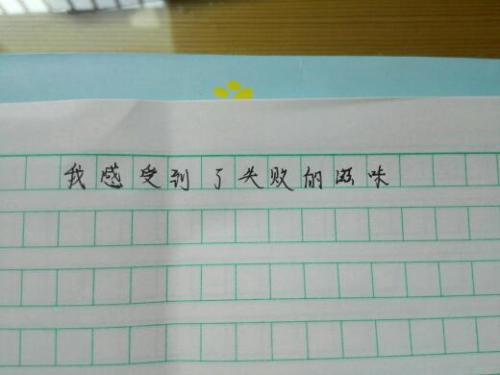 我感受到了失败的滋味